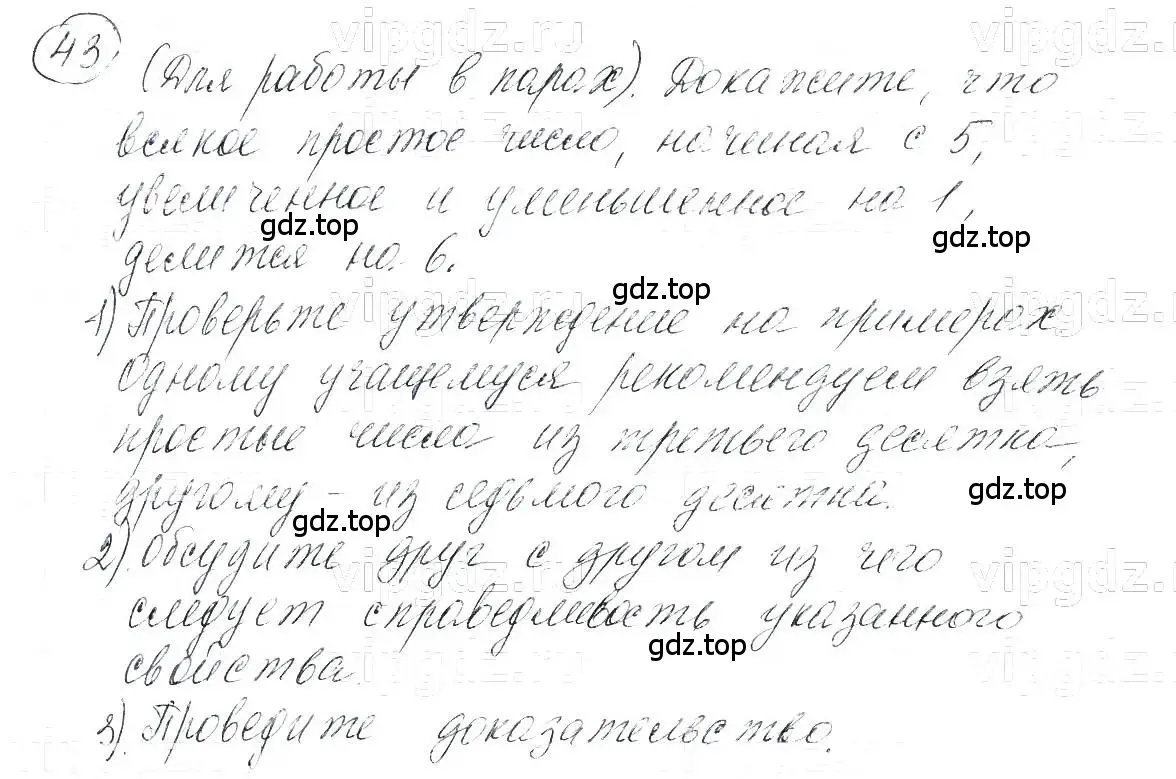 vipgdz.ru vipgdz.ru
43. (Для работы в парах). Докажите, что
всякое простое число, начиная с 5,
увеличенное и уменьшенное на 1,
gdz.top gdz.top
делится на 6.
gdz.top
1) Проверьте утверждение на примерах.
Одному учащемуся рекомендуем взять
простые числа из третьего десятка,
другому - из седьмого десятка.
gdz.top gdz.top
2). Обсудите друг с другом из чего
vipgdz.ru vipgdz.ru
следует справедливость указанного
gdz.top
свойства.
3). Проведите доказательство.